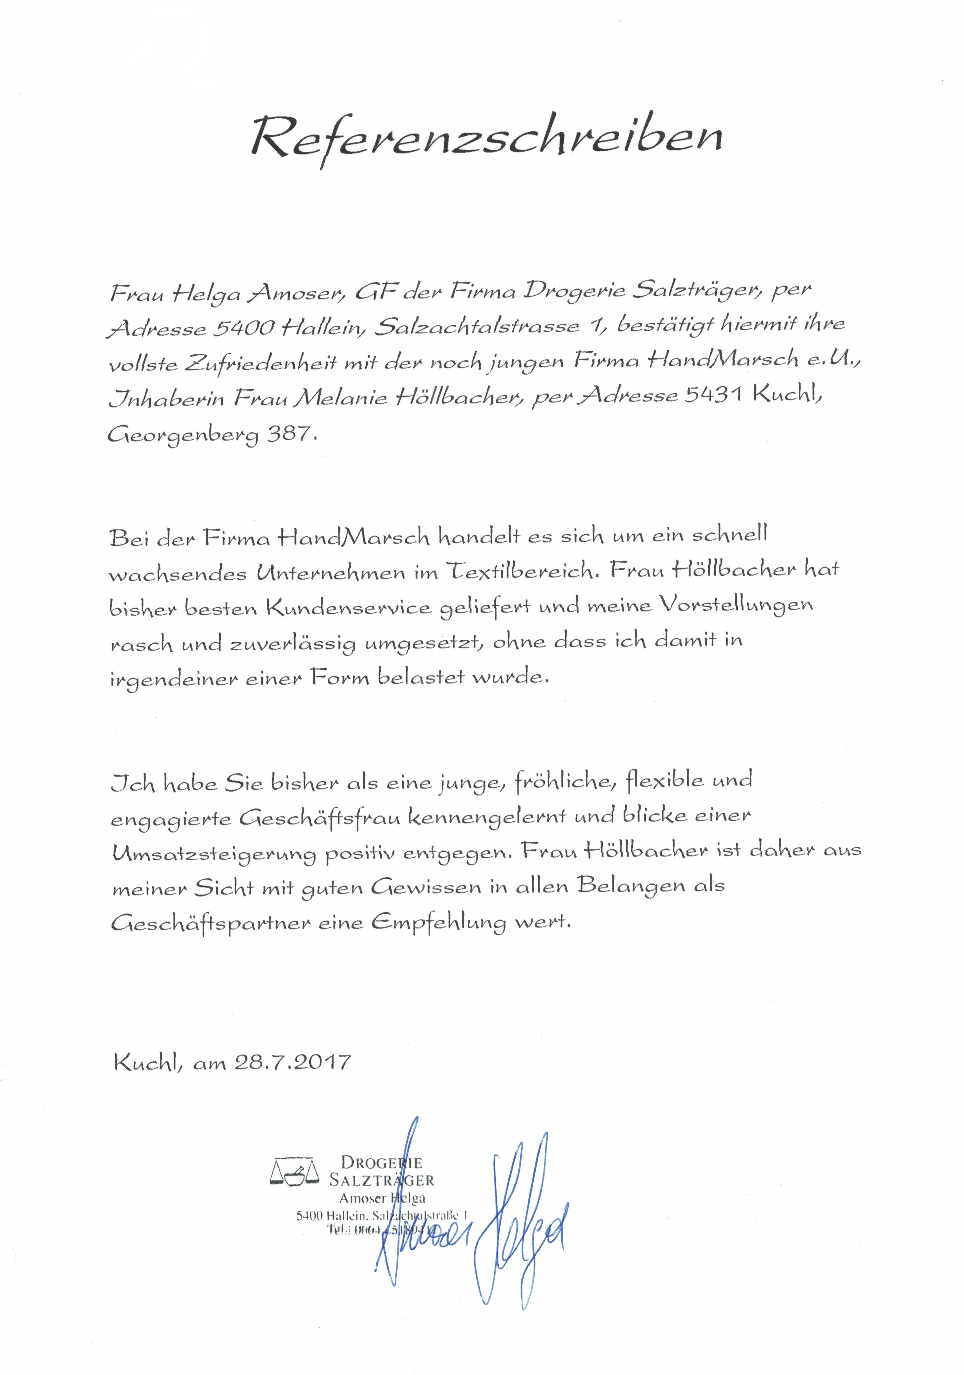 Referenzschreiben
Frau Helga Amoser, GF der Firma Drogerie Salzträger, per
Adresse 5400 Hallein, Salzachtalstrasse 1, bestätigt hiermit ihre
vollste Zufriedenheit mit der noch jungen Firma HandMarsch e.U.,
Inhaberin Frau Melanie Höllbacher, per Adresse 5431 Kuchl,
Georgenberg 387.
Bei der Firma HandMarsch handelt es sich um ein schnell
wachsendes Unternehmen im Textilbereich. Frau Höllbacher hat
bisher besten Kundenservice geliefert und meine Vorstellungen
rasch und zuverlässig umgesetzt, ohne dass ich damit in
irgendeiner einer Form belastet wurde.
Ich habe Sie bisher als eine junge, fröhliche, flexible und
engagierte Geschäftsfrau kennengelernt und blicke einer
Umsatzsteigerung positiv entgegen. Frau Höllbacher ist daher aus
meiner Sicht mit guten Gewissen in allen Belangen als
Geschäftspartner eine Empfehlung wert.
Kuchl, am 28.7.2017
DROGERIE
SALZTRÄGER
Amoser Helga
5400 Hallein, Salzachtalstraße 1
Tel.:
Amoser Helga